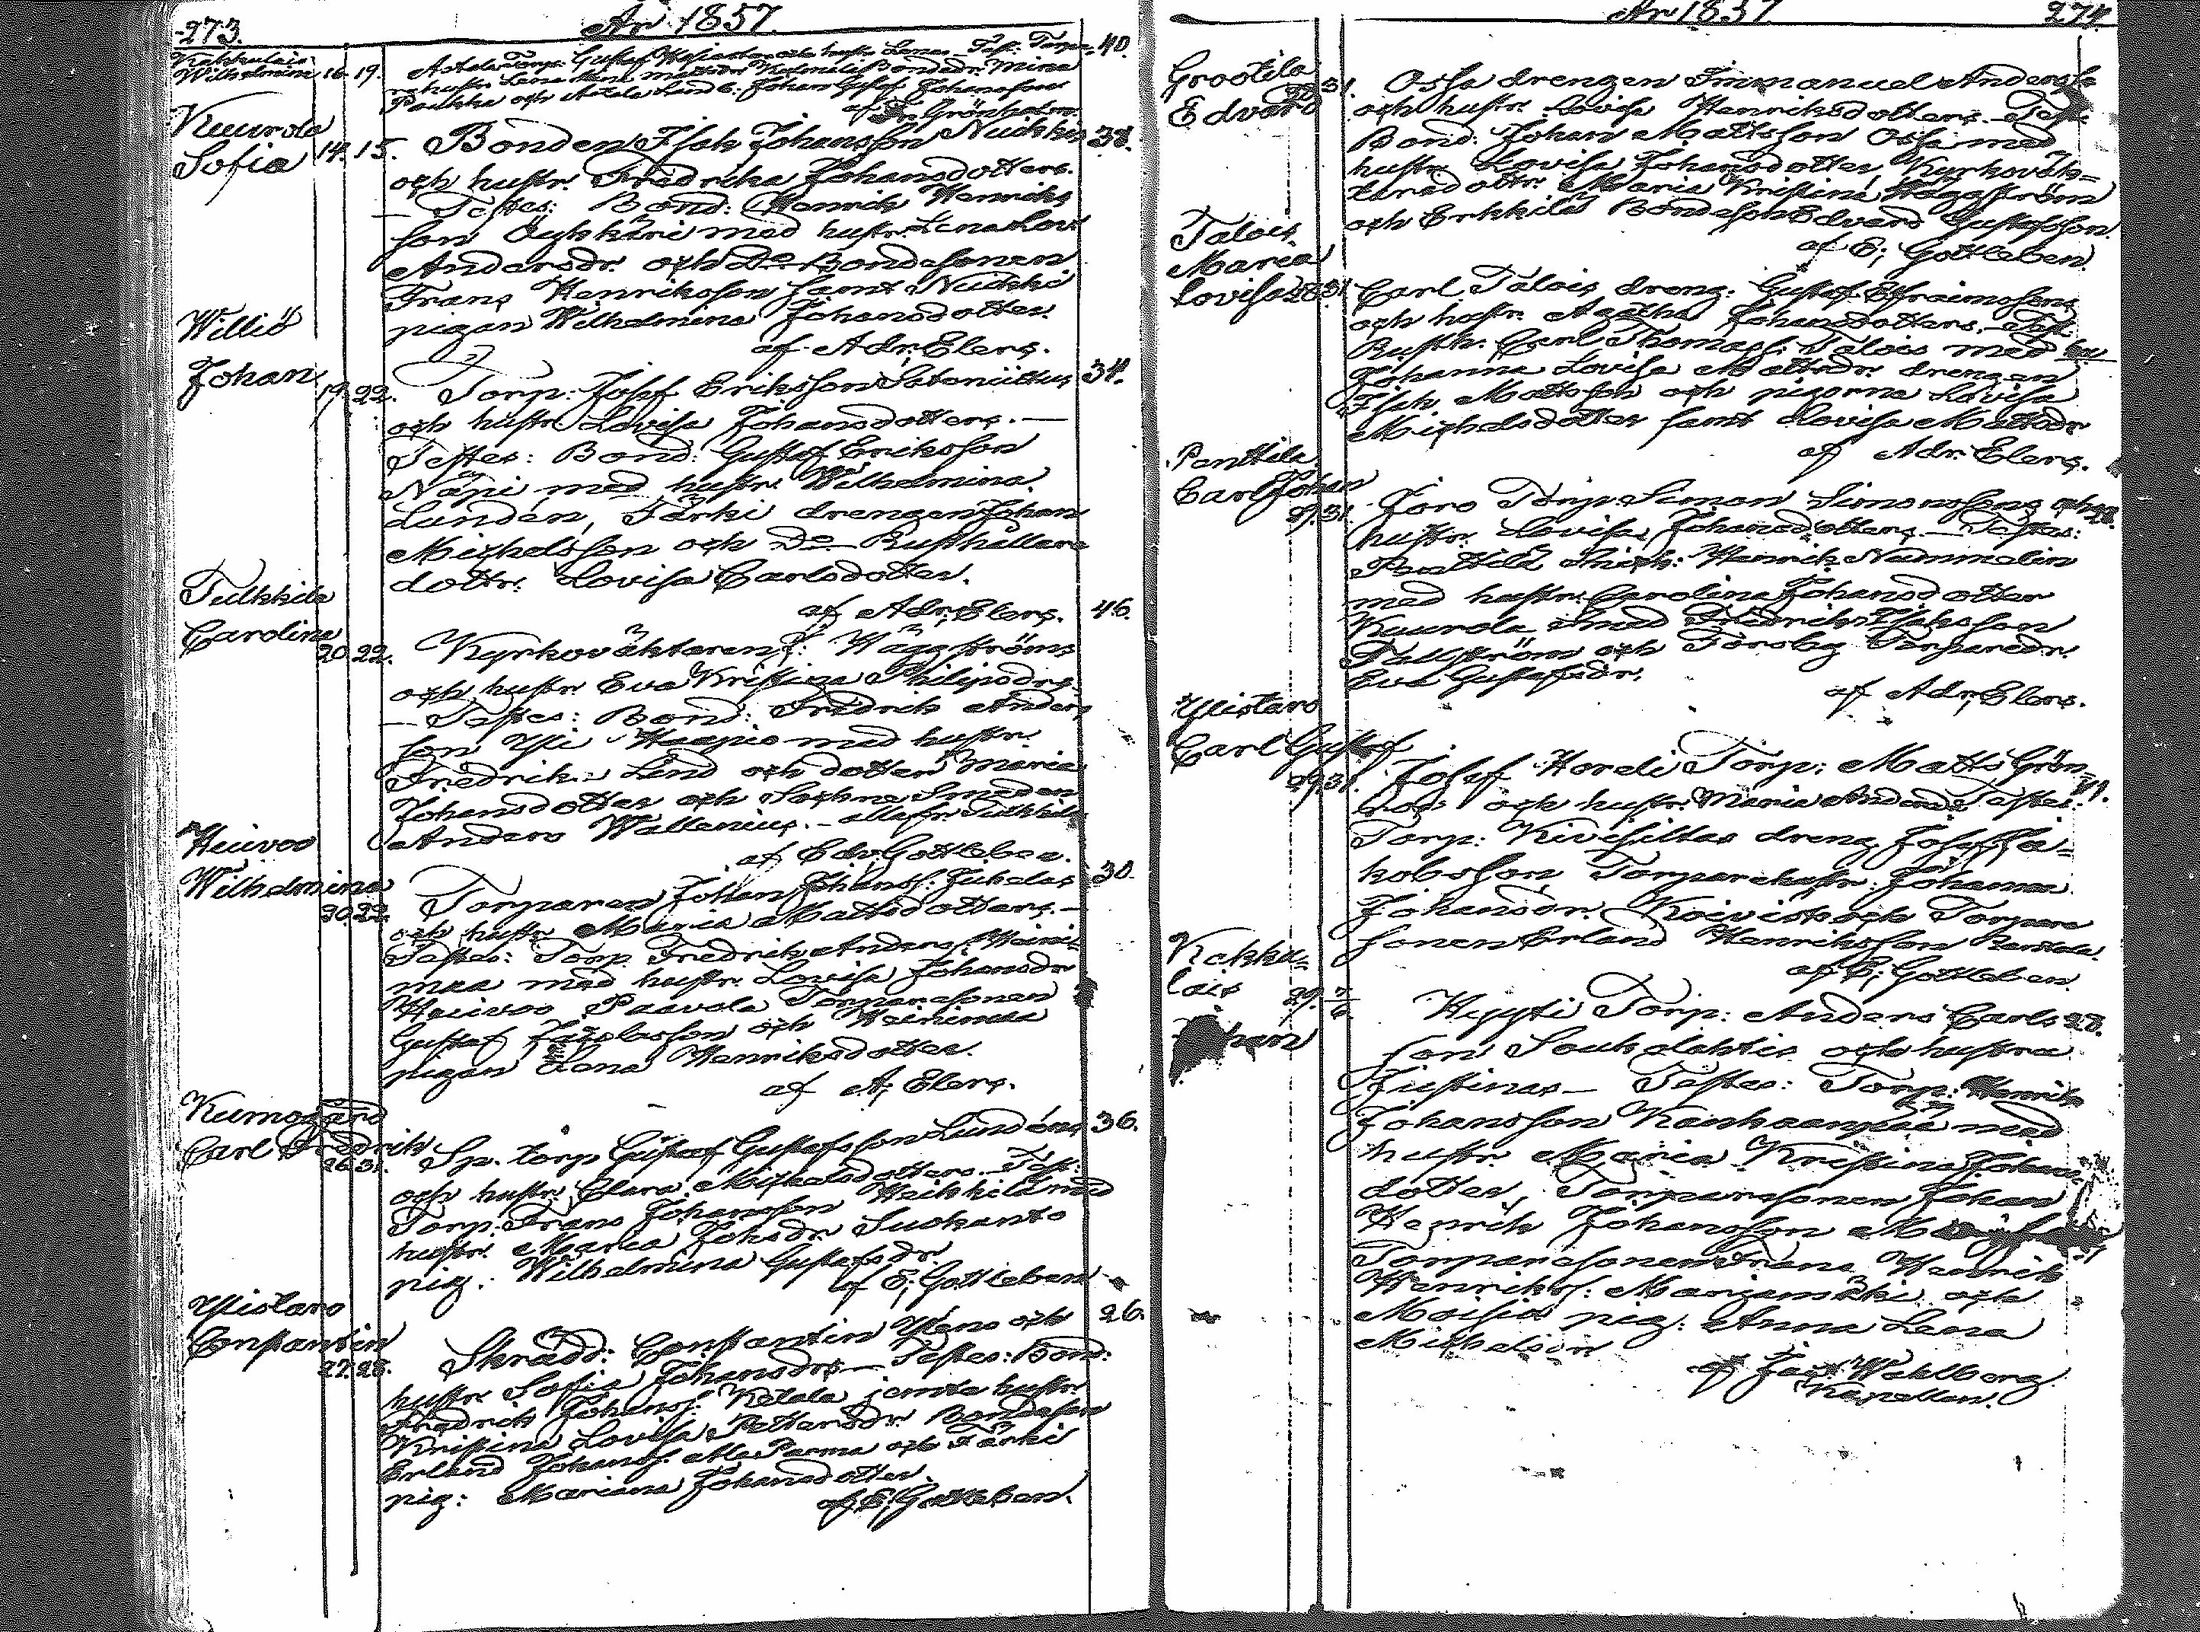 273. År 1857.
Kakkulais
Wilhelmina 16. 19. Torp: Gustaf hustr Lena Test: Torp: 40.
hustr Lena Bondedr. Mina
Paukka och Johan Gustaf Johansson
af Fr. Grönholm
Kuurola
Sofia 14. 15. Bonden Isak Johansson Nuckkis 38.
och hustr. Fredrika Johansdotters.
— Testes: Bond: Henrik Henriks
son Äyhkäri med hustr. Lena Lov:
Andersdr. och Do Bondesonen
Frans Henriksson samt Nuckki
pigan Wilhelmina Johansdotter.
af Adr. Elers.
Williö
Johan 19. 22. Torp: Josef Eriksson 34.
och hustr Lovisa Johansdotters. —
Testes: Bond: Gustaf Eriksson
Näpi med hustr. Wilhelmina
Lunden, Järki drengen Johan
Michelsson och Do Rusthållare
dottr: Lovisa Carlsdotter.
af Adr. Elers.
Tulkkila
Carolina 20. 22. Kyrkoväktaren J: Häggströms 46.
och hustr Eva Kristina Philipsdrs.
— Testes: Bond: Fredrik Anders
son Yli Haapio med hustr.
Fredrik: Lind och dotter Maria
Johansdotter och Sockne Smeden
Anders Wallenius. — alla fr. Tulkkila
af Edv. Gottleben.
Heivoo
Wilhelmina 20. 22. Torparen Johan Johanss: Jukolas 30.
och hustr Maria Mattsdotters. —
Testes: Torp. Fredrik Anders: Heini-
maa med hustr. Lovisa Johansdr
Heivoo Paavola Torparesonen
Gustaf och Heinimaa
pigan Lena Henriksdotter.
af A. Elers.
Kumogård
Carl Fredrik 26. 31. Sp. torp Gustaf Gustafsson Lundéns 36.
och hustr. Clara Michelsdotters. Test:
Torp. Frans Johansson Heikkilä med
hustr. Maria Johsdr. Suokanto
pig: Wilhelmina Gustafsdr.
af E. Gottleben
Ylistaro
Constantin 27. 28. Skradd: Constantin Yléns och 26.
hustr Sofia Johansdrs — Testes: Bond:
Fredrik Johanss: Ketala jemte hustr.
Kristina Lovisa Pettersdr. Bondeson
Erland Johanss. Ala Parma och Järki
pig: Mariana Johansdotter.
af E. Gottleben.
År 1857 274.
Grootila
Edvard 31. Ossa drengen Immanuel Anderss
och hustr. Lovisa Henriksdotters. — Test:
Bond: Johan Mattsson Ossa med
hustr. Lovisa Johansdotter, Kyrkoväk-
taredottr. Maria Kristina Häggström
och Erkkilä Bondeson Edvard Gustafsson.
af E. Gottleben.
Talois
Maria
Lovisa 28. 31. Carl Talois dreng: Gustaf Efraimssons
och hustr. Agatha Johansdotters. — Test:
Rusth. Carl Thomass: Talois med hu
Johanna Lovisa Mattsdr. drengen
Isak Mattsson och pigorna Lovisa
Michelsdotter samt Lovisa Mattsdr
af Adr. Elers.
Penttila
Carl Johan 29. 31. Joro Torp. Simon Simonssons och 28.
hustr. Lovisa Johansdotters. — Testes:
Penttilä Inh: Henrik Nummelin
med hustr. Carolina Johansdotter
Kuurola smed Fredrik Isaksson
Tallström och Forsby Torparedr.
Eva Gustafsdr.
af Adr. Elers.
Ylistaro
Carl Gustaf 29. 31. Josef Hordi Torp: Matts Grön- 41.
och hustr. Maria Andersd. Testes:
Torp: Kivisiltas dreng Josef Ja-
kobsson Torparehustr: Johanna
Johansdr. Koivisto och Torpare
sonen Erland Henriksson Penttila.
af E. Gottleben.
Kakku-
lais 29. 7/6
Johan Hyyti Torp: Anders Carls 28.
son Soukalahtis och hustru
Justinas — Testes: Torp: Henrik
Johansson Kankaanpää med
hustr. Maria Kristina Johans
dotter, Torparesonen Johan
Henrik Johansson
Torparesonen Frans Henrik
Henrikss: Marjamäki och
Moisia pig: Anna Lena
Michelsdr.
af Jac. Wahlberg
Kapellan.